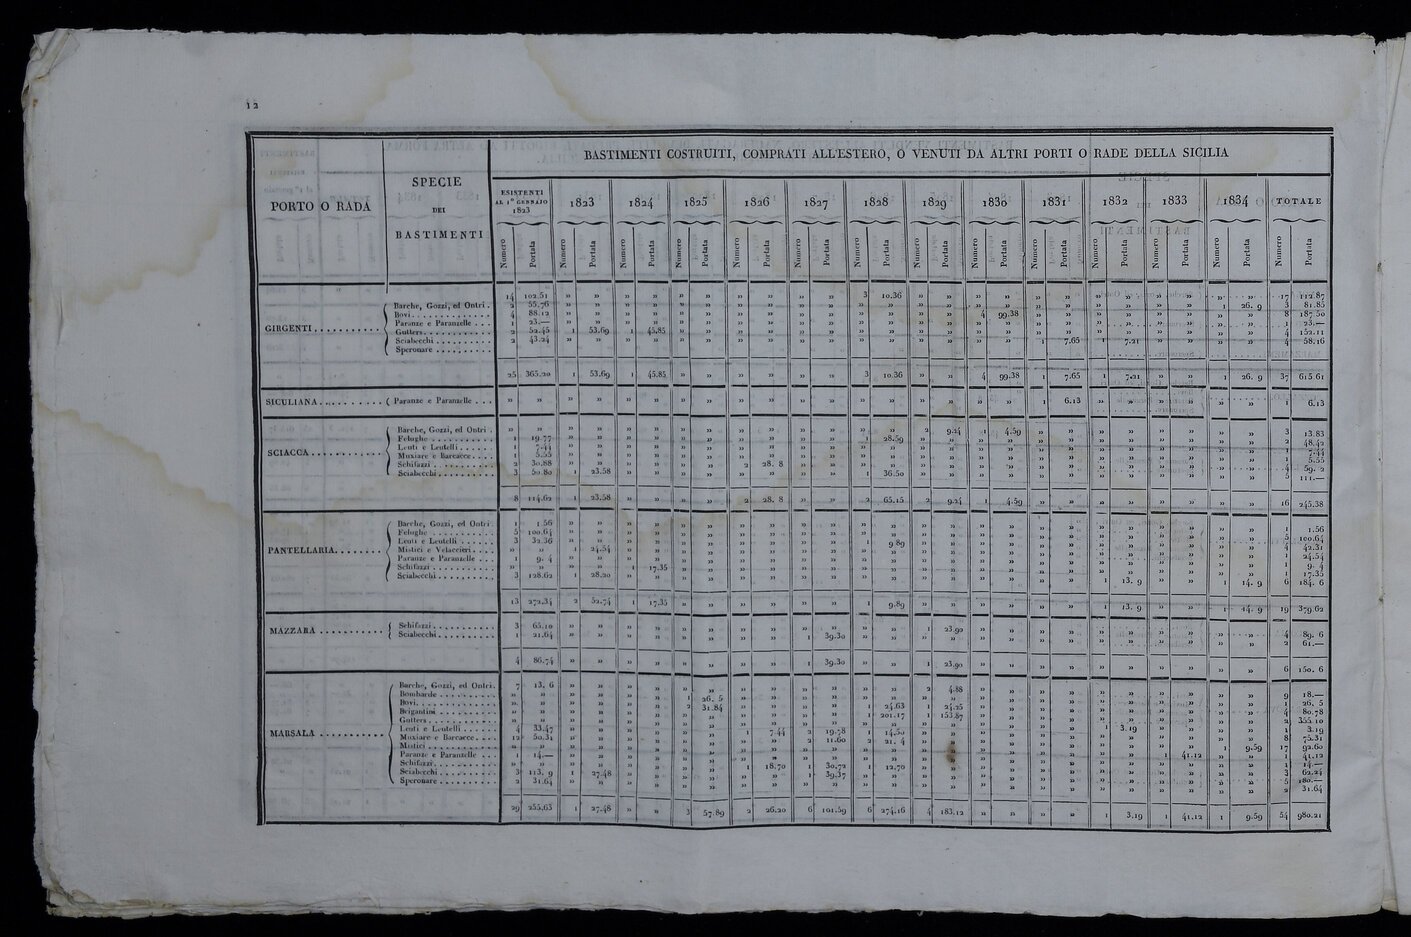 12
BASTIMENTI COSTRUITI, COMPRATI ALL'ESTERO, O VENUTI DA ALTRI PORTI O RADE DELLA SICILIA
PORTO O RADA
SPECIE
DEI
BASTIMENTI
ESISTENTI
AL 1° GENNAIO
1823
1823 1824 1825 1826 1827 1828 1829 1830 1831 1832 1833 1834 TOTALE
Numero Portata Numero Portata Numero Portata Numero Portata Numero Portata Numero Portata Numero Portata Numero Portata Numero Portata Numero Portata Numero Portata Numero Portata Numero Portata Numero Portata
GIRGENTI
Barche, Gozzi, ed Ontri 14 102.51 » » » » » » » » » » 3 10.36 » » » » » » » » » » » » 17 112.87
Bovi 2 55.76 1 26. 9 3 81.85
Paranze e Paranzelle 4 88.12 4 99.38 8 187.50
Gutters 1 23.— 1 23.—
Sciabecchi 2 52.45 1 53.69 1 45.85 4 152.11
Speronare 2 43.24 1 7.65 1 7.21 4 58.16
25 365.20 1 53.69 1 45.85 » » » » » » 3 10.36 » » 4 99.38 1 7.65 1 7.21 » » 1 26. 9 37 615.61
SICULIANA Paranze e Paranzelle » » » » » » » » » » » » » » » » » » 1 6.13 » » » » » » 1 6.13
SCIACCA
Barche, Gozzi, ed Ontri » » 2 9.24 1 4.59 3 13.83
Felughe 1 19.77 1 28.59 2 48.42
Leuti e Leutelli 1 7.44 1 7.44
Muxiare e Barcacce 1 5.55 1 5.55
Schifazzi 2 30.88 2 28. 8 4 59. 2
Sciabecchi 3 50.80 1 23.58 1 36.50 5 111.—
8 114.62 1 23.58 » » » » 2 28. 8 » » 2 65.15 2 9.24 1 4.59 » » » » » » » » 16 245.38
PANTELLARIA
Barche, Gozzi, ed Ontri 1 1.56 1 1.56
Felughe 5 100.64 5 100.64
Leuti e Leutelli 3 32.36 1 9.89 4 42.31
Mistici e Velaccieri » » 1 24.54 1 24.54
Paranze e Paranzelle 1 9. 4 1 9. 4
Schifazzi » » 1 17.35 1 17.35
Sciabecchi 3 128.62 1 28.20 1 13. 9 1 14. 9 6 184. 6
13 272.34 2 52.74 1 17.35 » » » » » » 1 9.89 » » » » » » 1 13. 9 » » 1 14. 9 19 379.62
MAZZARA
Schifazzi 3 65.10 1 23.90 4 89. 6
Sciabecchi 1 21.64 1 39.30 2 61.—
4 86.74 » » » » » » » » 1 39.30 » » 1 23.90 » » » » » » » » » » 6 150. 6
MARSALA
Barche, Gozzi, ed Ontri 7 13. 6 2 4.88 9 18.—
Bombarde » » 1 26. 5 1 26. 5
Bovi » » 2 31.84 1 24.63 1 24.25 4 80.78
Brigantini » » 1 201.17 1 153.87 2 355.10
Gutters » » 1 3.19 1 3.19
Leuti e Leutelli 4 33.47 1 7.44 2 19.78 1 14.50 8 75.31
Muxiare e Barcacce 12 50.31 2 11.60 2 21. 4 1 9.59 17 92.60
Mistici » » 1 41.12 1 41.12
Paranze e Paranzelle 1 14.— 1 14.—
Schifazzi » » 1 18.70 1 30.72 1 12.70 3 62.24
Sciabecchi 3 113. 9 1 27.48 1 39.37 5 180.—
Speronare 2 31.64 2 31.64
29 255.63 1 27.48 » » 3 57.89 2 26.20 6 101.59 6 274.16 4 183.12 » » » » 1 3.19 1 41.12 1 9.59 54 980.21